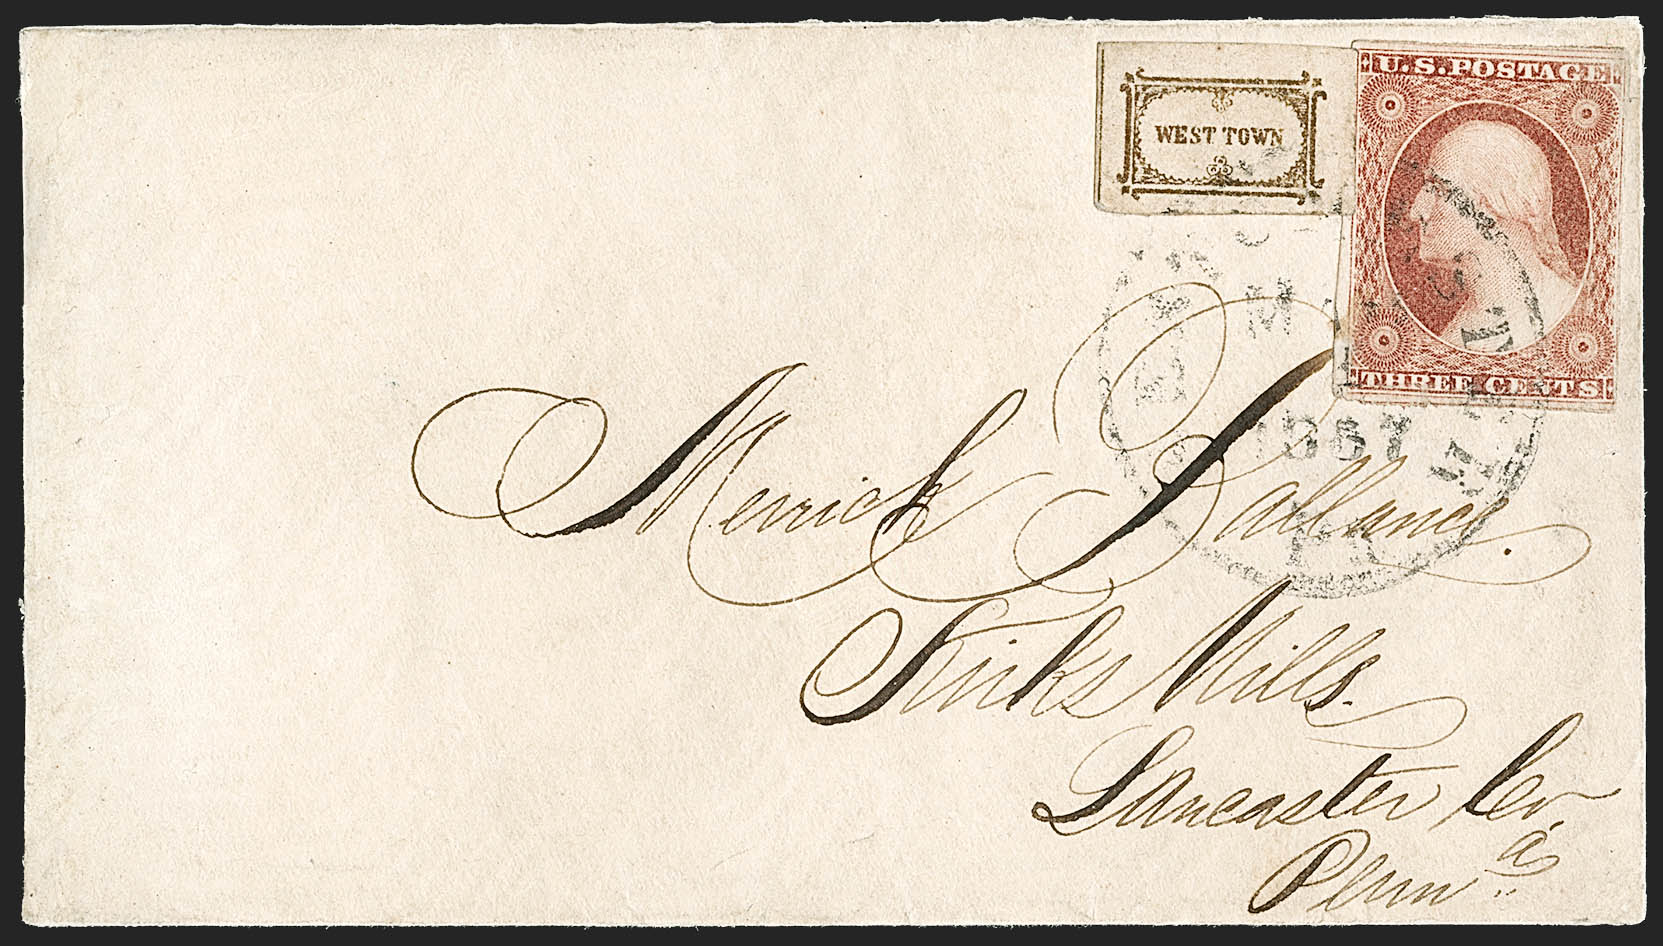 WEST TOWN
U.S. POSTAGE
THREE CENTS
1857
PA
Merrick
Kirks Mills.
Lancaster Co.
Penn a